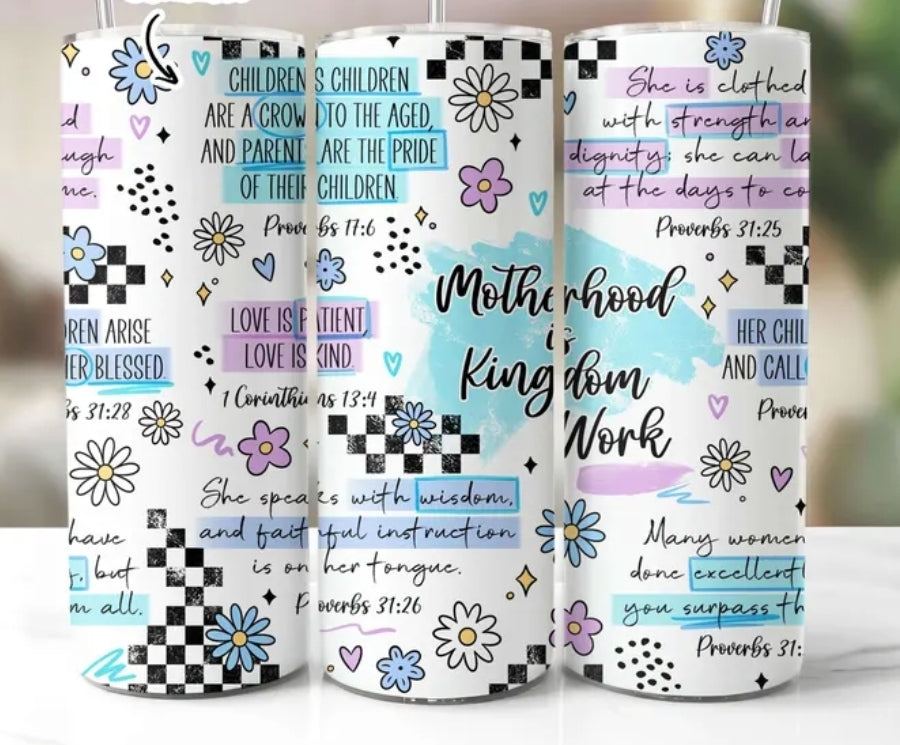 ugh
me.
DREN ARISE
HER BLESSED.
bs 31:28
have
, but
m all.
CHILDREN'S CHILDREN
ARE A CROWN TO THE AGED,
AND PARENTS ARE THE PRIDE
OF THEIR CHILDREN.
Proverbs 17:6
LOVE IS PATIENT,
LOVE IS KIND.
1 Corinthians 13:4
She speaks with wisdom,
and faithful instruction
is on her tongue.
Proverbs 31:26
Motherhood
is
Kingdom
Work
She is clothed
with strength an
dignity; she can la
at the days to co
Proverbs 31:25
HER CHIL
AND CALL
Prover
Many women
done excellentl
you surpass th
Proverbs 31: